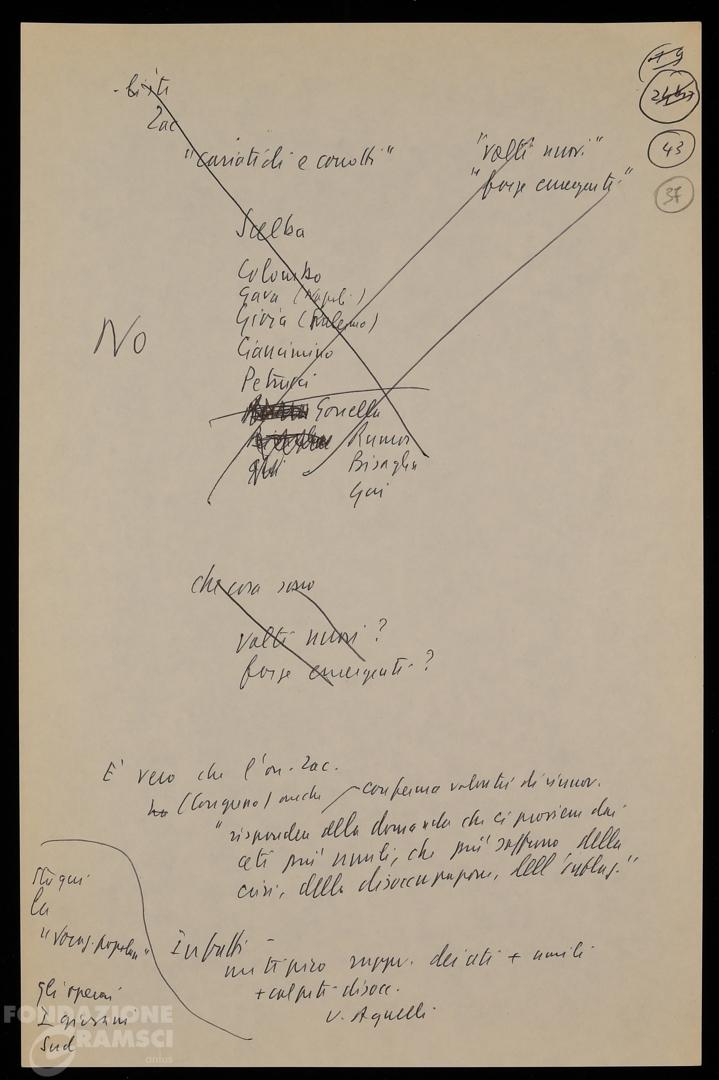 79
43
37
- liste
Zac
"cariatidi e corrotti"
"volti nuovi"
"forze emergenti"
Scelba
Colombo
Gava (Napoli)
Gioia (Palermo)
Ciancimino
Petrucci
Gonella
Rumor
Bisaglia
Gui
No
che cosa sono
volti nuovi?
forze emergenti?
E' vero che l'on. Zac.
(Corigliano) anche conferma volontà di rinnov.
"risponder alla domanda che ci proviene dai
ceti più umili, che più soffrono della
crisi, della disoccupazione, dell'
sta qui
la
"vocaz. popolare"
gli operai
I giovani
Sud
Infatti -
un tipico rappr. dei ceti + umili
+ colpiti disocc.
U. Agnelli
FONDAZIONE
GRAMSCI
onlus